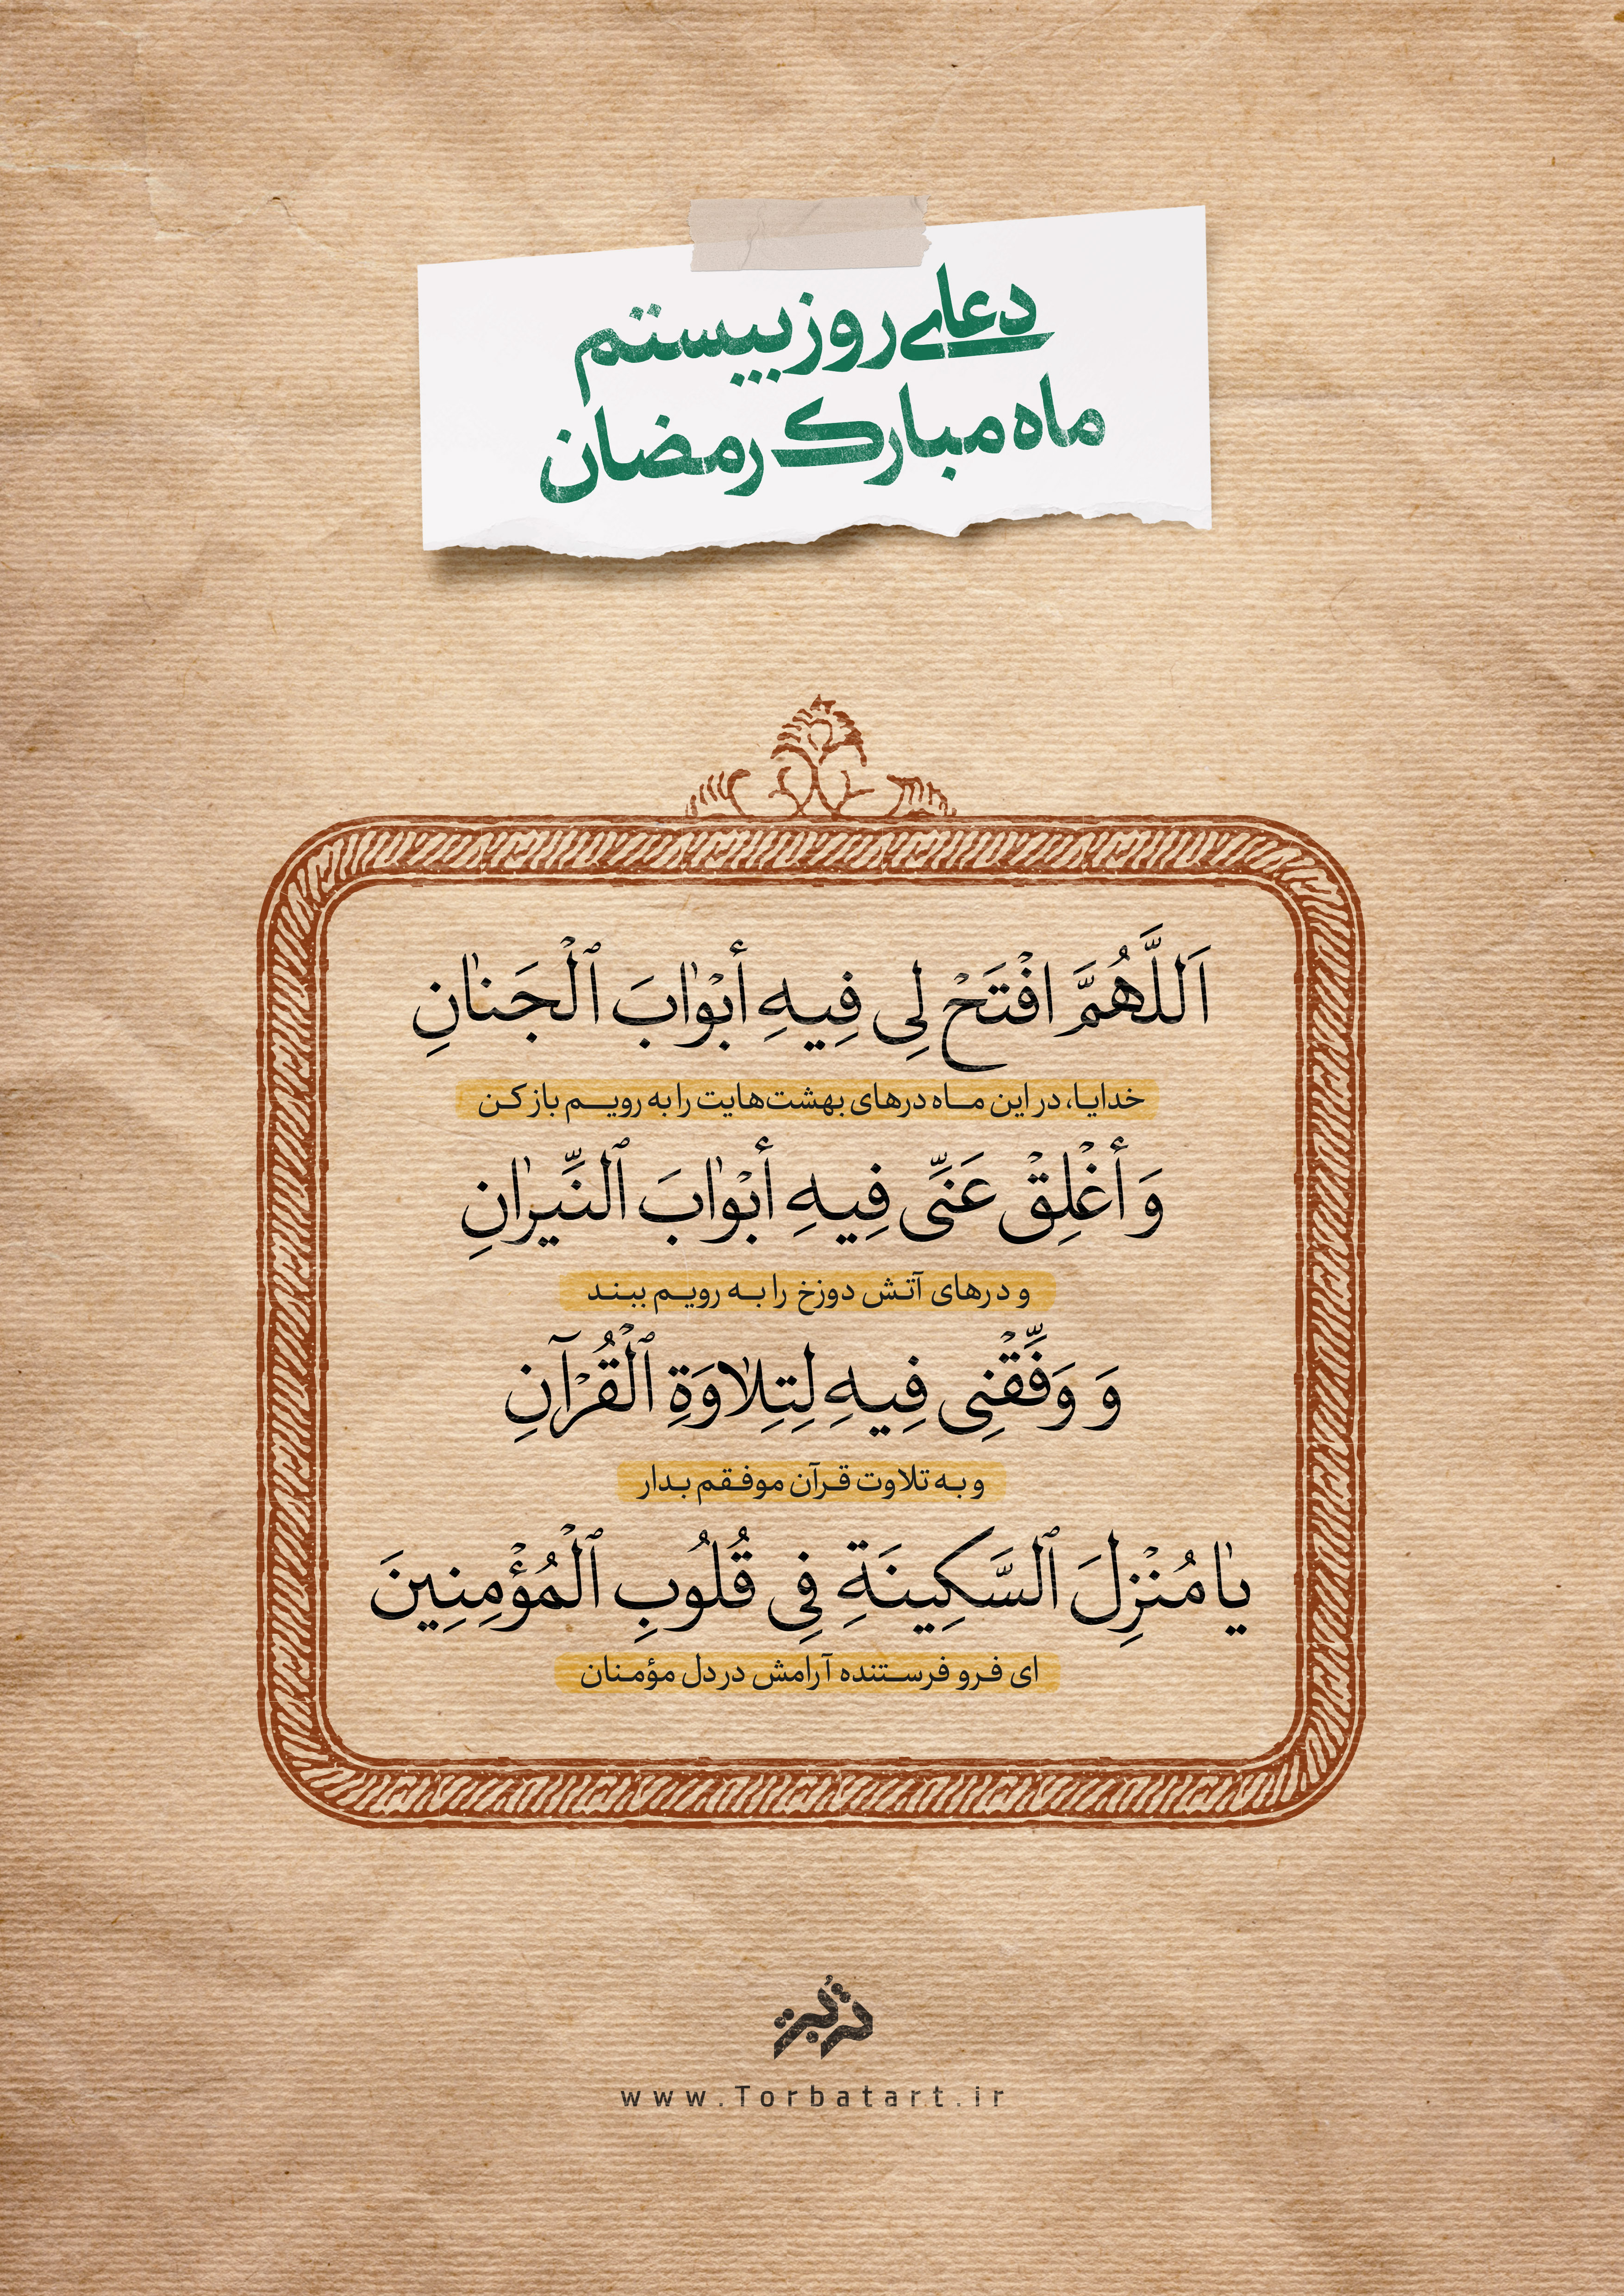 دعای روز بیستم
ماه مبارک رمضان
اَللَّهُمَّ افْتَحْ لِی فِیهِ أبْوٰابَ ٱلْجَنٰانِ
خدایا، در این ماه درهای بهشت‌هایت را به رویم باز کن
وَ أغْلِقْ عَنِّی فِیهِ أبْوٰابَ ٱلنِّیرٰانِ
و درهای آتش دوزخ را به رویم ببند
وَ وَفِّقْنِی فِیهِ لِتِلٰاوَةِ ٱلْقُرْآنِ
و به تلاوت قرآن موفقم بدار
یٰا مُنْزِلَ ٱلسَّکِینَةِ فِی قُلُوبِ ٱلْمُؤْمِنِینَ
ای فرو فرستنده آرامش در دل مؤمنان
تربت
www.Torbatart.ir